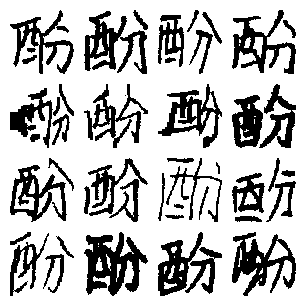 酚酚酚酚
酚酚酚酚
酚酚酚酚
酚酚酚酚